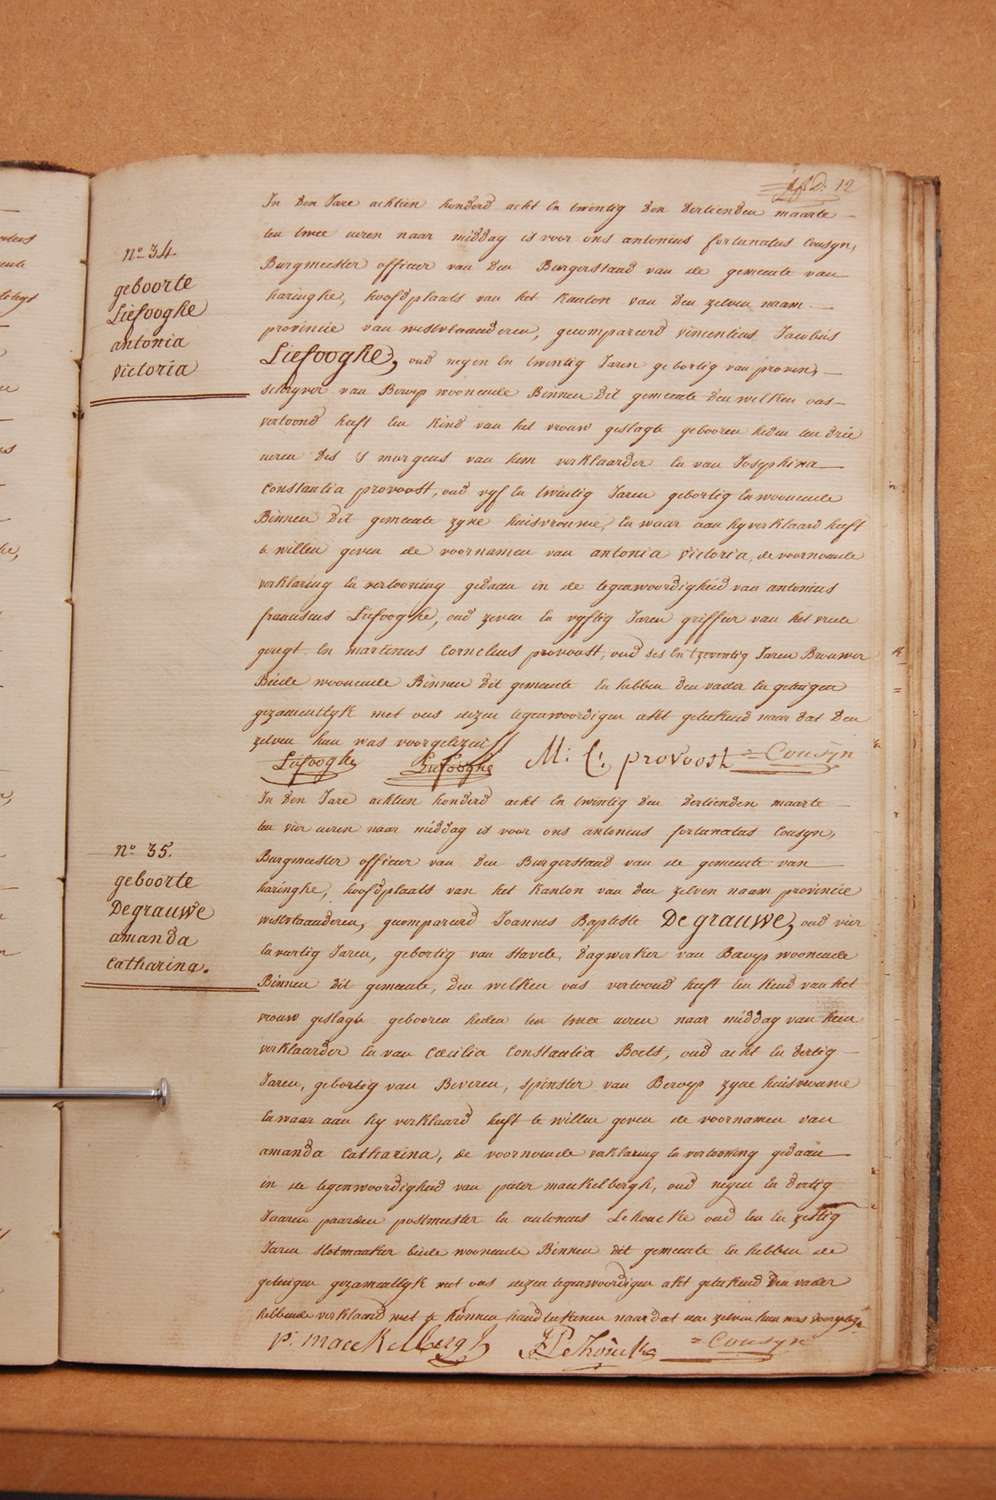 12
n.º 34.
geboorte
Liefooghe
antonia
victoria
In den Jare achtien honderd acht en twintig den dertienden maarte
ten twee uren naar middag is voor ons antonius fortunatus Cousyn,
Burgmeester officier van den Burgerstand van de gemeente van
haringhe, hoofdplaats van het kanton van den zelven naam
provincie van westvlaanderen, gecompareerd vincentius Jacobus
Liefooghe, oud negen en twintig Jaren gebortig van proven,
schryver van Beroep woonende Binnen dit gemeente den welken ons
vertoond heeft een kind van het vrouw geslagte gebooren heden ten drie
uren des 's morgens van hem verklaarder en van Josephina
Constantia provoost, oud vyf en twintig Jaren gebortig en woonende
Binnen dit gemeente zyne huisvrouwe, en waar aan hy verklaard heeft
te willen geven de voornamen van antonia victoria, de voornoemde
verklaring en vertooning gedaan in de tegenwoordigheid van antonius
franciscus Liefooghe, oud zeven en vyftig Jaren griffier van het vrede
geregt en martinus Cornelius provoost, oud ses en tzeventig Jaren Brouwer
Beide woonende Binnen dit gemeente en hebben den vader en getuigen
gezamentlyk met ons dezen tegenwoordigen akt geteekend naar dat den
zelven hun was voorgelezen
Liefooghe Liefooghe M: C: provoost Cousyn
n.º 35.
geboorte
De grauwe
amanda
Catharina.
In den Jare achtien honderd acht en twintig den dertienden maarte
ten vier uren naar middag is voor ons antonius fortunatus Cousyn,
Burgmeester officier van den Burgerstand van de gemeente van
haringhe, hoofdplaats van het kanton van den zelven naam provincie
westvlaanderen, gecompareerd Joannes Baptiste De grauwe, oud vier
en veertig Jaren, gebortig van Stavele, dagwerker van Beroep woonende
Binnen dit gemeente, den welken ons vertoond heeft een kind van het
vrouw geslagte gebooren heden ten twee uren naar middag van hem
verklaarder en van Cœcilia Constantia Boels, oud acht en dertig
Jaren, gebortig van Beveren, spinster van Beroep zyne huisvrouwe
en waar aan hy verklaard heeft te willen geven de voornamen van
amanda Catharina, de voornoemde verklaring en vertooning gedaan
in de tegenwoordigheid van pieter maeckelbergh, oud negen en dertig
Jaaren paarden postmeester en antonius Lehoucke oud en zestig
Jaren slotmaaker beide woonende Binnen dit gemeente en hebben de
getuigen gezamentlyk met ons dezen tegenwoordigen akt geteekend den vader
hebbende verklaard niet te kunnen handteekenen naar dat den zelven hun was voorgelezen
p: maeckelbergh Cousyn